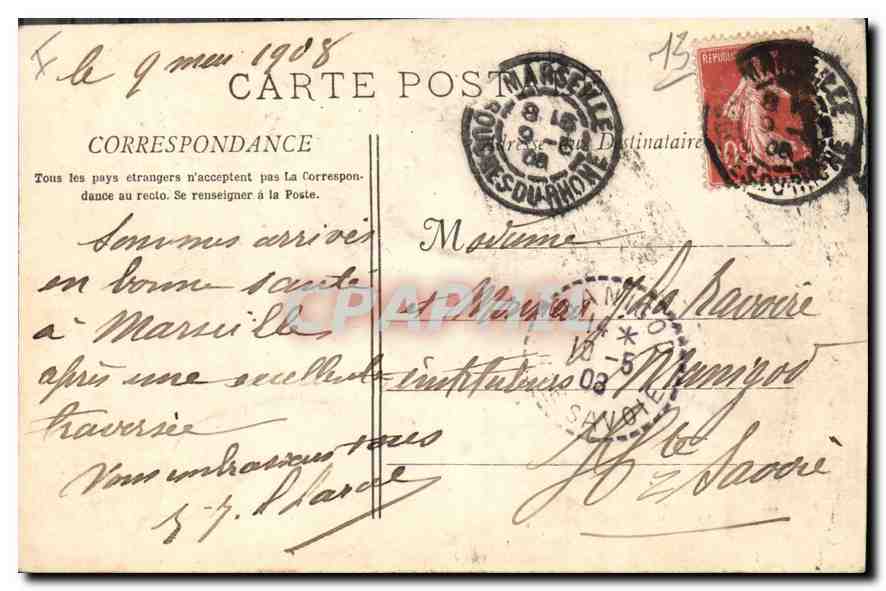 le 9 mai 1908
13
CARTE POST
CORRESPONDANCE
Tous les pays etrangers n'acceptent pas La Correspon-
dance au recto. Se renseigner à la Poste.
Adresse du Destinataire
MARSEILLE
BOUCHES-DU-RHONE
MARSEILLE
DU-RHONE
Sommes arrivés
en bonne santé
à Marseille
après une excellente
traversée
Vous embrassons tous
Madame
et Monsieur Ravoire
instituteurs Manigod
Hte Savoie
10 -5
08
SAVOIE
CPAPHIL